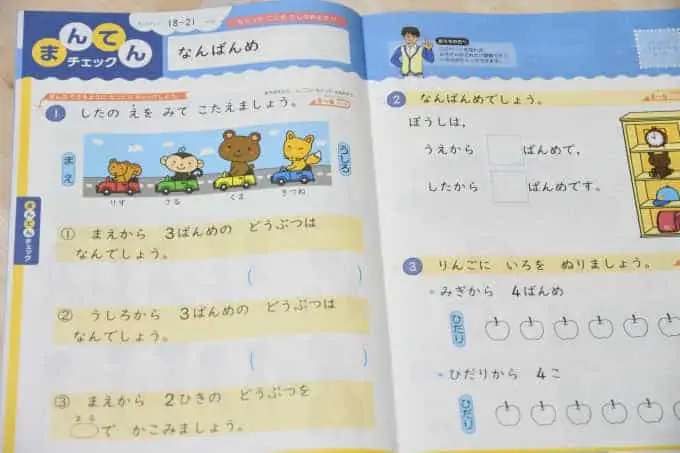 まんてん
チェック
18~21
なんばんめ
1 したの えを みて こたえましょう。
まえ
うしろ
りす さる くま きつね
① まえから 3ばんめの どうぶつは
なんでしょう。
( )
② うしろから 3ばんめの どうぶつは
なんでしょう。
( )
③ まえから 2ひきの どうぶつを
まる
で かこみましょう。
まんてん
チェック
2 なんばんめでしょう。
ぼうしは、
うえから ばんめで、
したから ばんめです。
3 りんごに いろを ぬりましょう。
・みぎから 4ばんめ
ひだり
・ひだりから 4こ
ひだり